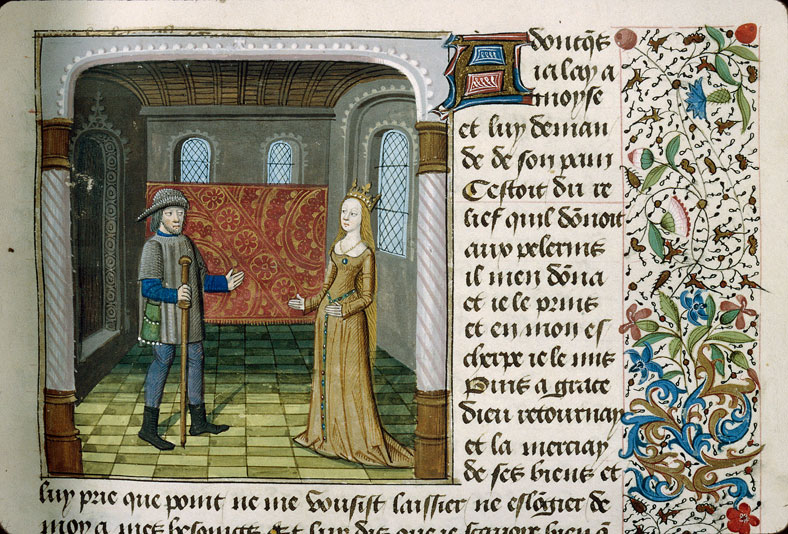 Adoncq̄s
ialay a
moyse
et luy deman
de de son pain
Cestoit du re
lief quil dōnoit
aux pelerins
il men dōna
et ie le prins
et en mon es
cherpe ie le mis
Puis a grace
dieu retournay
et la merciay
de ses biens et
luy prie que point ne me voulsist laissier ne eslōgier de
moy a mes besoings Et luy dis que ie scauoie bien q̄